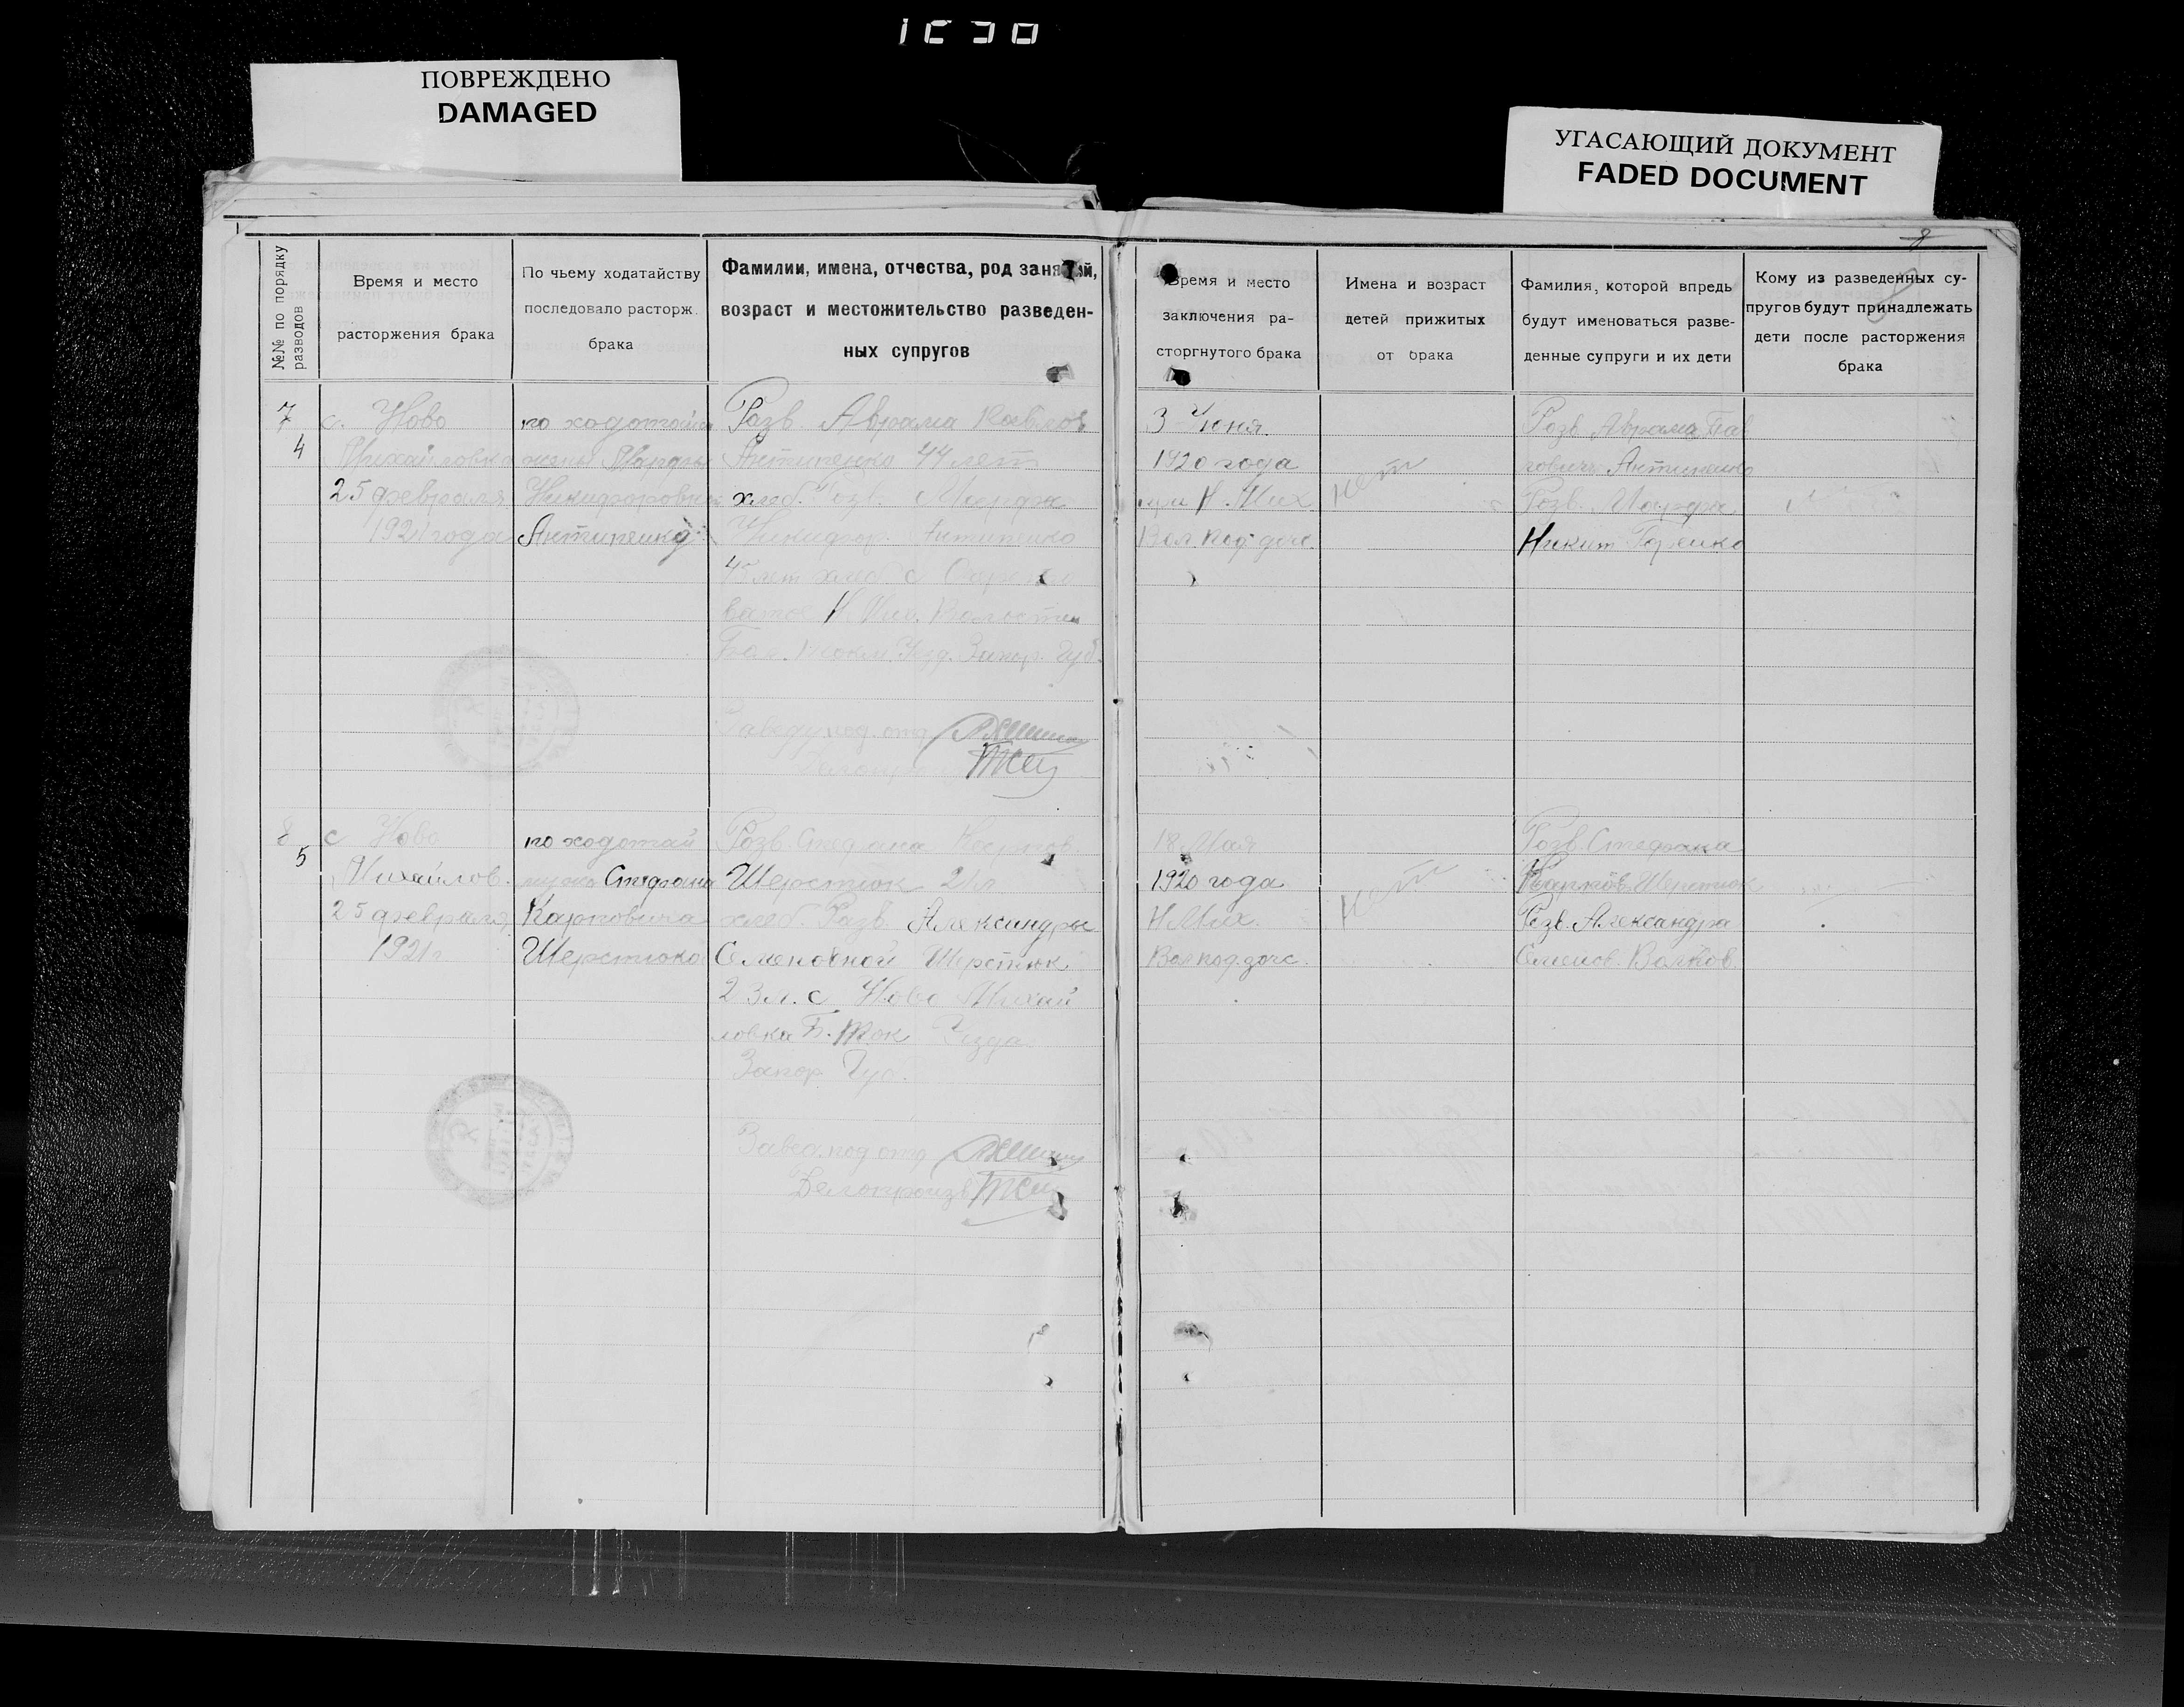 ПОВРЕЖДЕНО
DAMAGED
УГАСАЮЩИЙ ДОКУМЕНТ
FADED DOCUMENT
8
№№ по порядку
разводов
Время и место
расторжения брака
По чьему ходатайству
последовало расторж.
брака
Фамилии, имена, отчества, род занятий,
возраст и местожительство разведен-
ных супругов
Время и место
заключения ра-
сторгнутого брака
Имена и возраст
детей прижитых
от брака
Фамилия, которой впредь
будут именоваться разве-
денные супруги и их дети
Кому из разведенных су-
пругов будут принадлежать
дети после расторжения
брака
7
4
с. Ново
Михайловка
25 февраля
1921 года
по ходотай
жены Марфы
Никифоровны
Антипенко
Разв. Аврама Павлов
Антипенко 44 лет
хлеб. Розв. Марфа
Никифор. Антипенко
45 лет хлеб. с
Н. Мих. Волости
Бол. Токм. Узд. Запор. Губ.
Заведу под. отд.
3 Июня
1920 года
при Н. Мих
Вол. под. дзгс.
нет
Розв. Аврама Пав
ловичь Антипенко
Розв. Марфа
Никит
8
5
с Ново
Михайлов.
25 февраля
1921 г
по ходотай
мужа Стефана
Карповича
Шерстюка
Розв. Стефана Карпов.
Шерстюк
хлеб. Разв. Александры
Семеновной Шерстюк
23 л. с Ново Михай
ловка Б. Ток Уезда
Запор Губ.
Завед. под отд
Делопроизв
18 Мая
1920 года
Н Мих.
Вол под. дзгс.
нет
Розв. Стефана
Карпов. Шерстюк
Розв. Александра
Семенов. Волков.